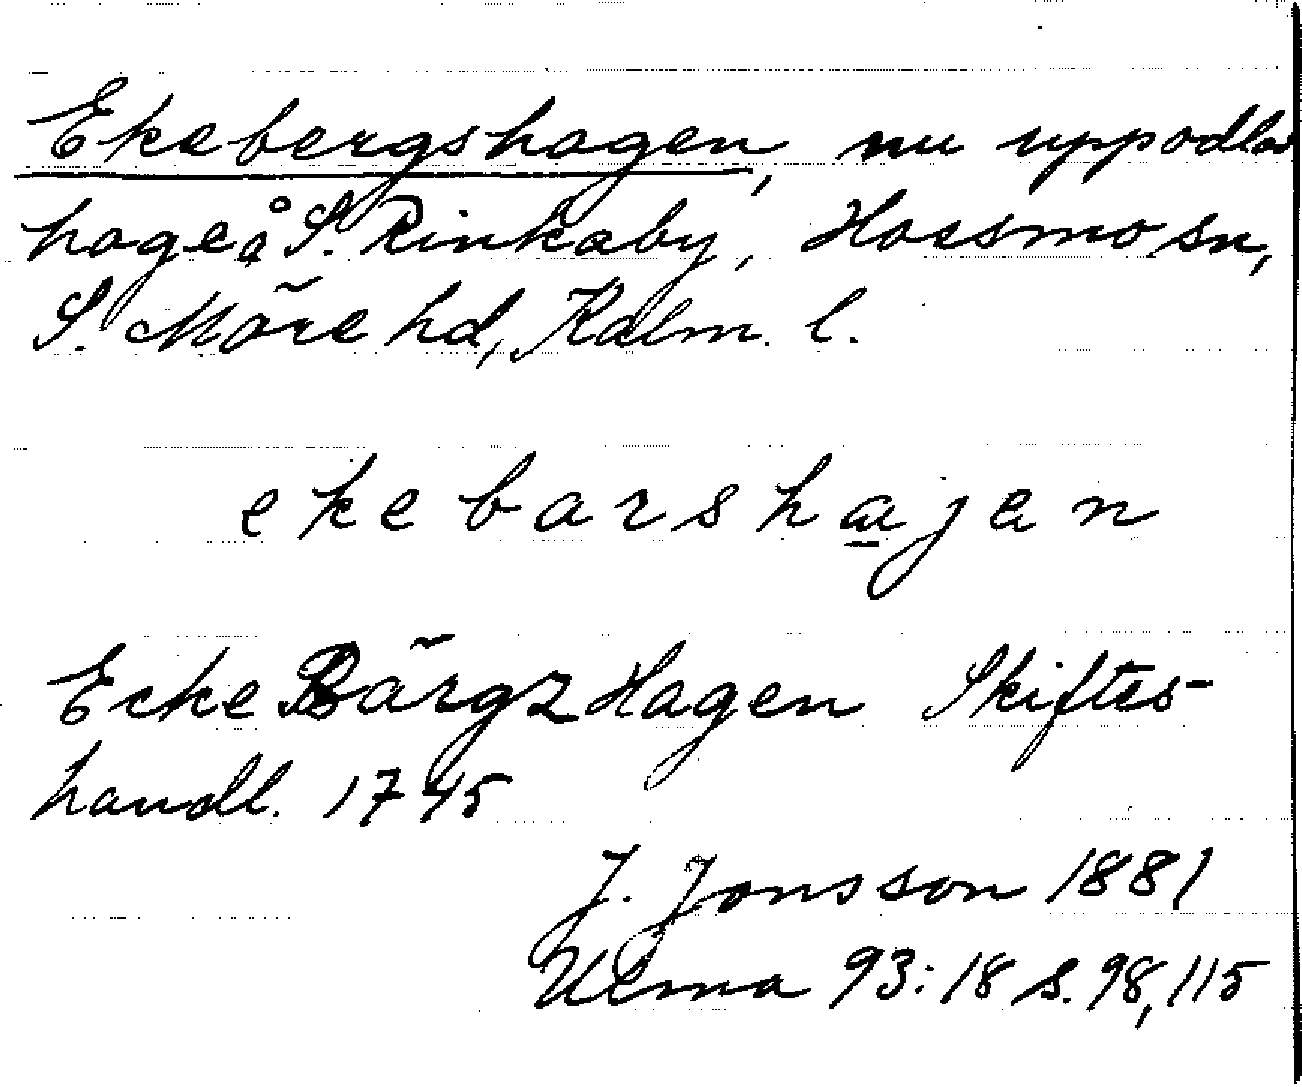 Ekebergshagen, nu uppodlad
hage å S. Rinkaby, Hossmo sn,
S. Möre hd, Kalm. l.
ekebarshajen
Ecke BärgzHagen Skiftes-
handl. 1745
J. Jonsson 1881
Ulma 93:18 s. 98, 115